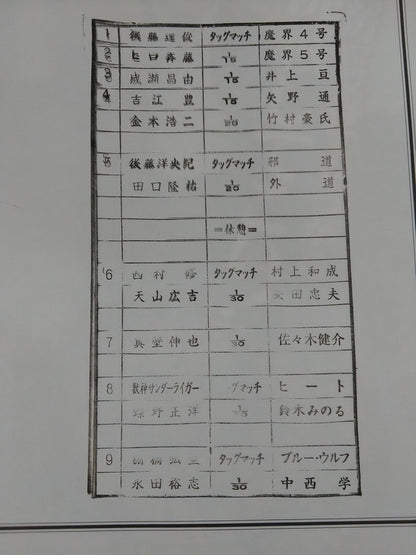 1 後藤達俊 タッグマッチ 魔界4号
2 ヒロ斉藤 1/15 魔界5号
3 成瀬昌由 1/15 井上亘
4 吉江豊 1/15 矢野通
金本浩二 1/20 竹村豪氏
5 後藤洋央紀 タッグマッチ 邪道
田口隆祐 1/20 外道
=休憩=
6 西村修 タッグマッチ 村上和成
天山広吉 1/30 安田忠夫
7 真壁伸也 1/30 佐々木健介
8 獣神サンダーライガー グマッチ ヒート
蝶野正洋 鈴木みのる
9 棚橋弘至 タッグマッチ ブルー・ウルフ
永田裕志 1/30 中西学